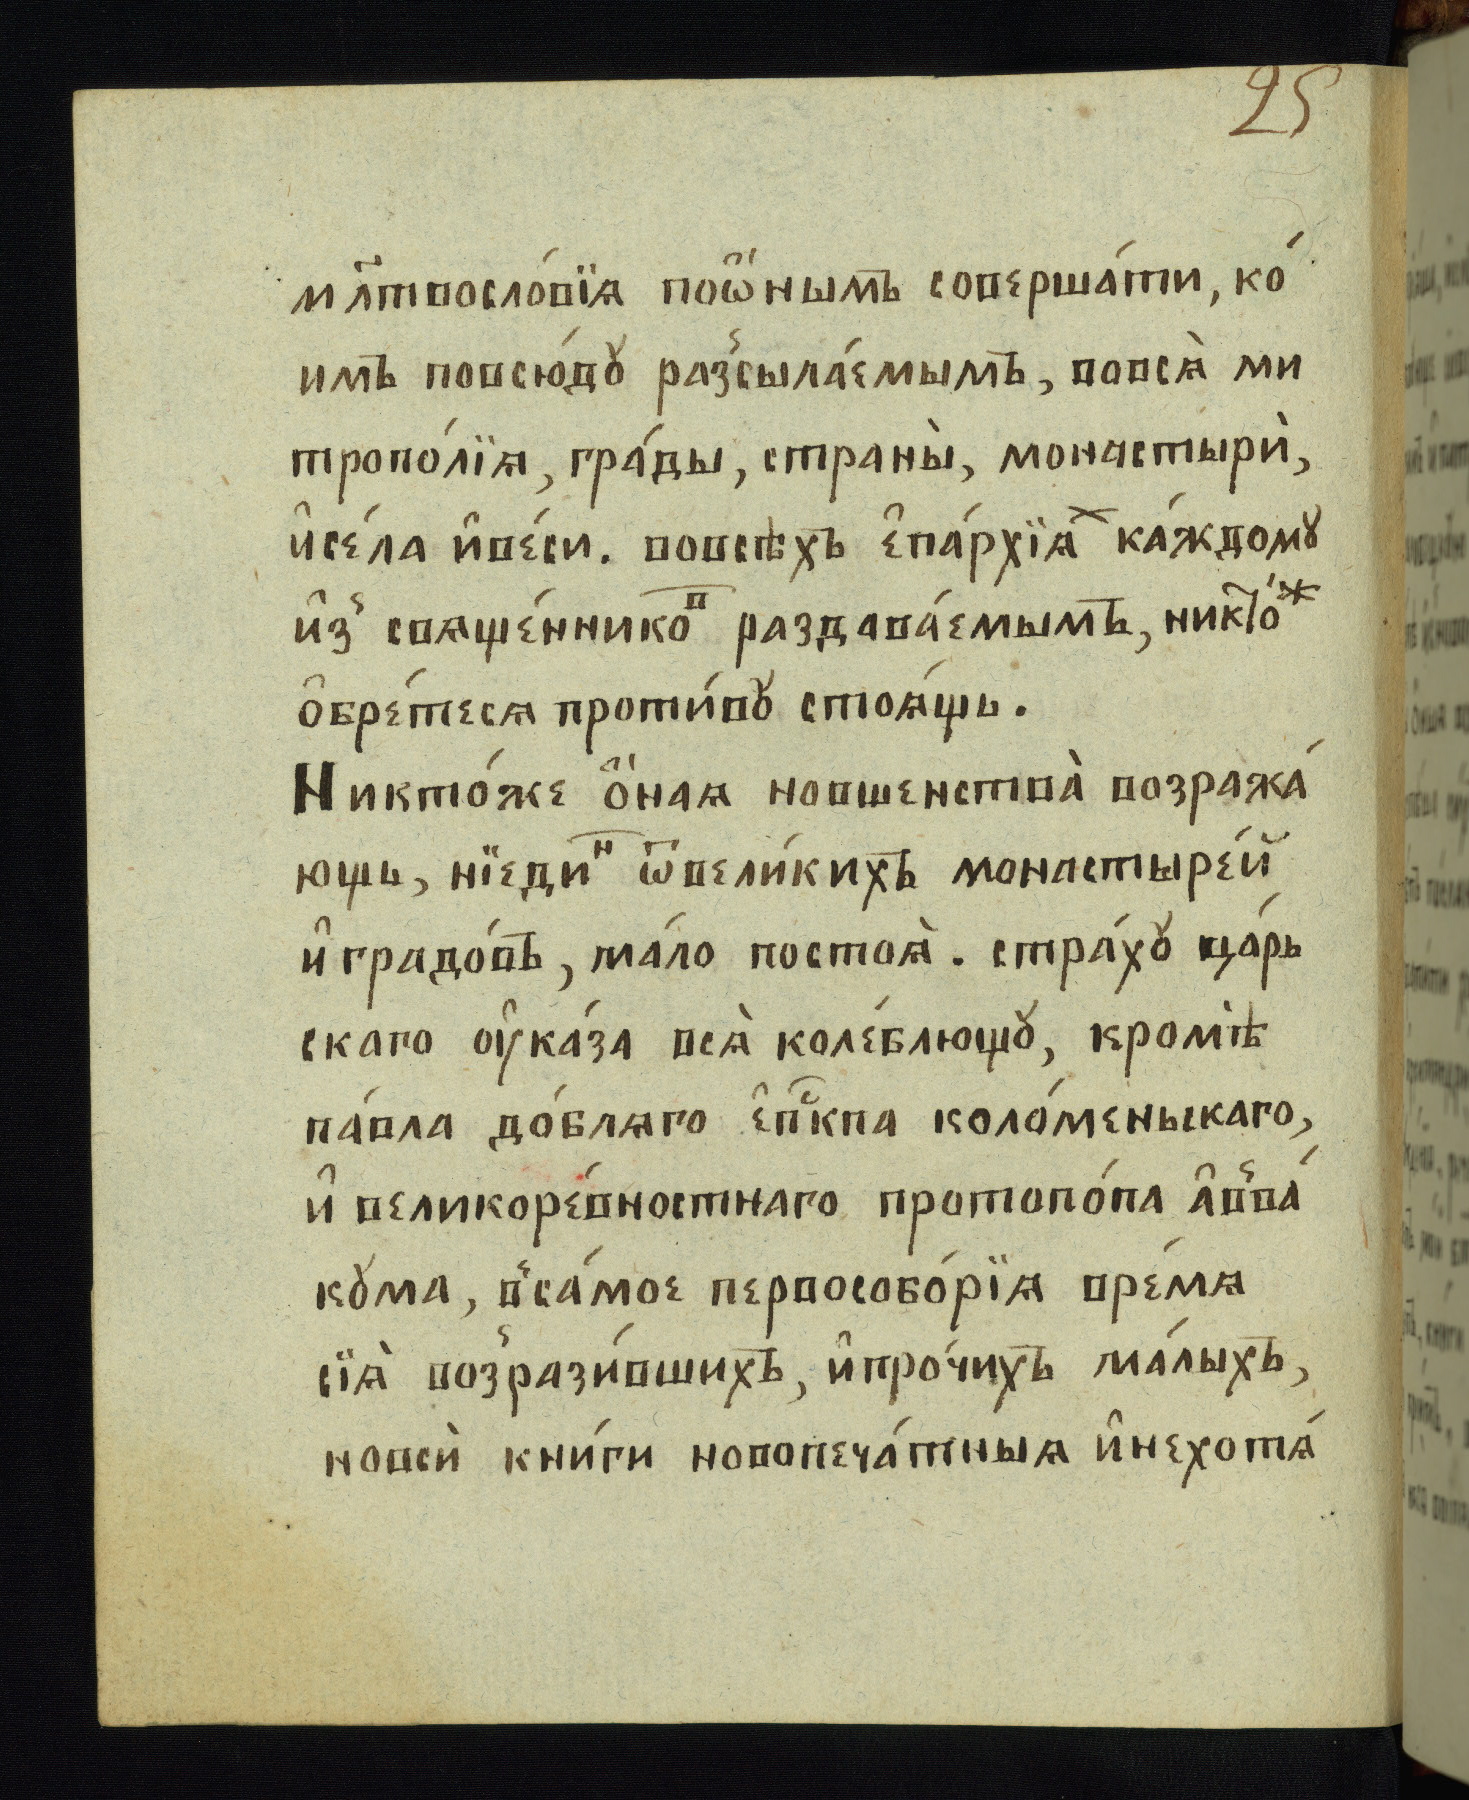 25
мл҃твосло́вїѧ поѡ҆́нымъ соверша́ти, ко́
имъ повсю́дꙋ раз̾сыла́емымъ, вовсѧ̀ ми
трополі́ѧ, гра́ды, страны̀, монастырѝ,
и҆се́ла и҆ве́си. вовсѣхъ є҆па́рхїѧⷯ ка́ждомꙋ
и҆з̾ свѧще́нникоⷡ раздава́емымъ, никто́ⷤ
ѻ҆бре́тесѧ проти́вꙋ стоѧ́щь.
Никто́же ѻ҆́наѧ новшенства̀ возража́
ющь, нїедиⷩ ѿвели́кихъ монастыре́й
и҆ градо́въ, ма́ло постоѧ̀. стра́хꙋ ца́рь
скаго оу҆ка́за всѧ̀ коле́блющꙋ, кромѣ̀
па́вла до́блѧго є҆пⷭ҇кпа коло́меньскаго,
и҆ великоре́вностнаго протопо́па а҆в̾ва́
кꙋма, в̾са́мое первособо́рїѧ вре́мѧ
сїѧ̀ воз̾рази́вшихъ, и҆про́чихъ ма́лыхъ,
новсѝ кни́ги новопеча́тныѧ и҆нехотѧ́